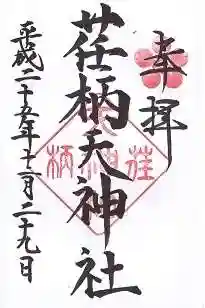 奉拝
荏柄天神社
平成二十五年十一月二十九日